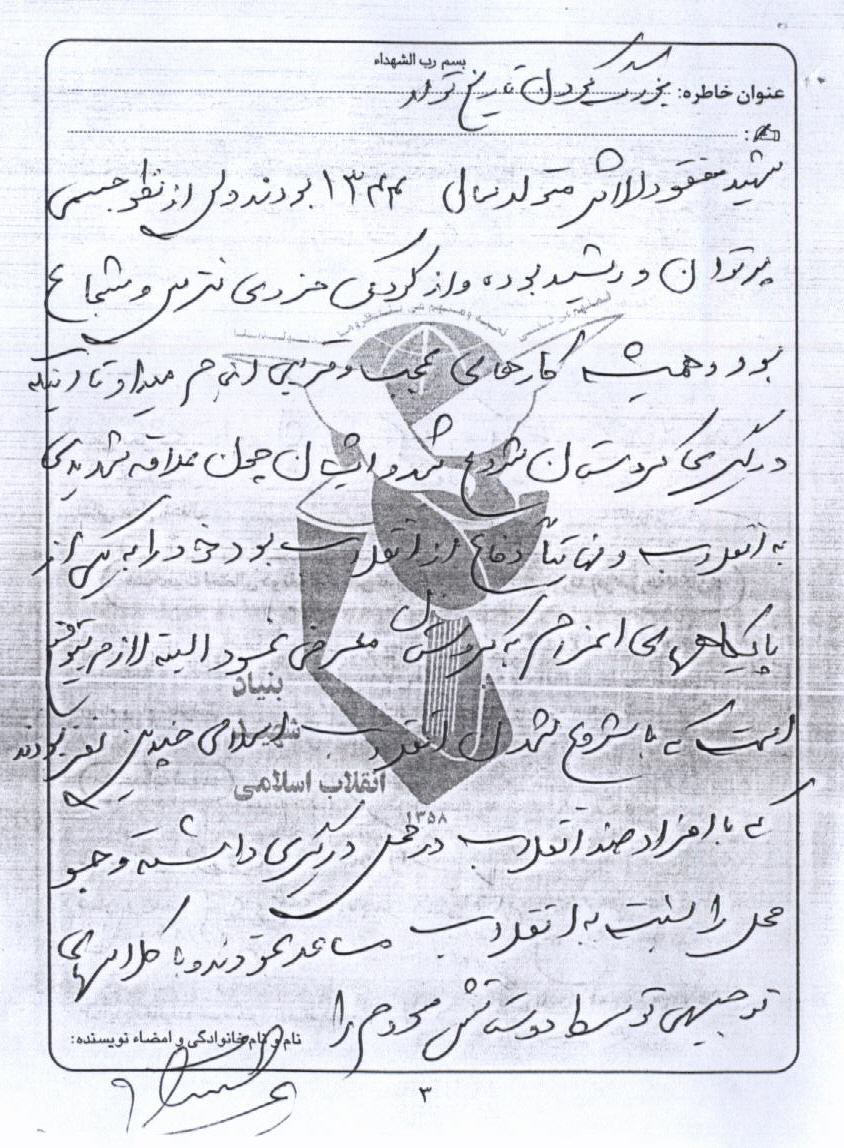 بسم رب الشهداء
عنوان خاطره: بزرگ کردن تاریخ تولد
شهید مفقودالاثر متولد سال ۱۳۴۴ بودند ولی از نظر جسمی
پرتوان و رشید بوده و از کودکی فردی نترس و شجاع
بود و همیشه کارهای عجیب و غریبی انجام میداد تا اینکه
درگیری کردستان شروع شد و ایشان چون علاقه شدیدی
به انقلاب و نهایتاً دفاع از انقلاب بود خود را به یکی از
پایگاههای اعزام به کردستان معرفی نمود البته لازم بتوضیح
است که با شروع شدن انقلاب اسلامی چندین نفر بودند
که با افراد ضد انقلاب در محل درگیری داشته و جو
محل را نسبت به انقلاب مساعد نمودند و با کلاسهای
توجیهی توسط دوستانش مردم را
نام و نام خانوادگی و امضاء نویسنده:
۳
بنیاد
شهید
انقلاب اسلامی
۱۳۵۸